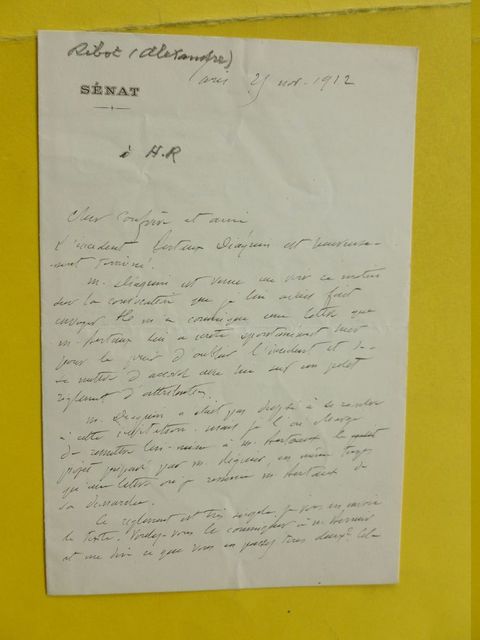 Ribot (Alexandre)
Paris 25 nov. 1912
SÉNAT
à H.R
Cher confrère et ami
L'incident Hertaux Dieägnin est heureuse-
ment terminé.
M. est venu me voir ce matin
sur la convocation que je lui avais fait
envoyer. Il m'a communiqué une lettre que
M. lui a écrite spontanément hier
pour le prier d'oublier l'incident et de
se mettre d'accord avec lui sur un projet
règlement d'attributions.
M. n'était pas disposé à se rendre
à cette invitation. mais je l'ai chargé
de remettre lui-même à M. le
projet préparé par M. en même temps
qu'une lettre où je remercie M. de
sa démarche.
Ce règlement est très simple. Je vous en envoie
le texte. Voulez-vous le communiquer à M.
et me dire ce que vous en pensez tous deux?